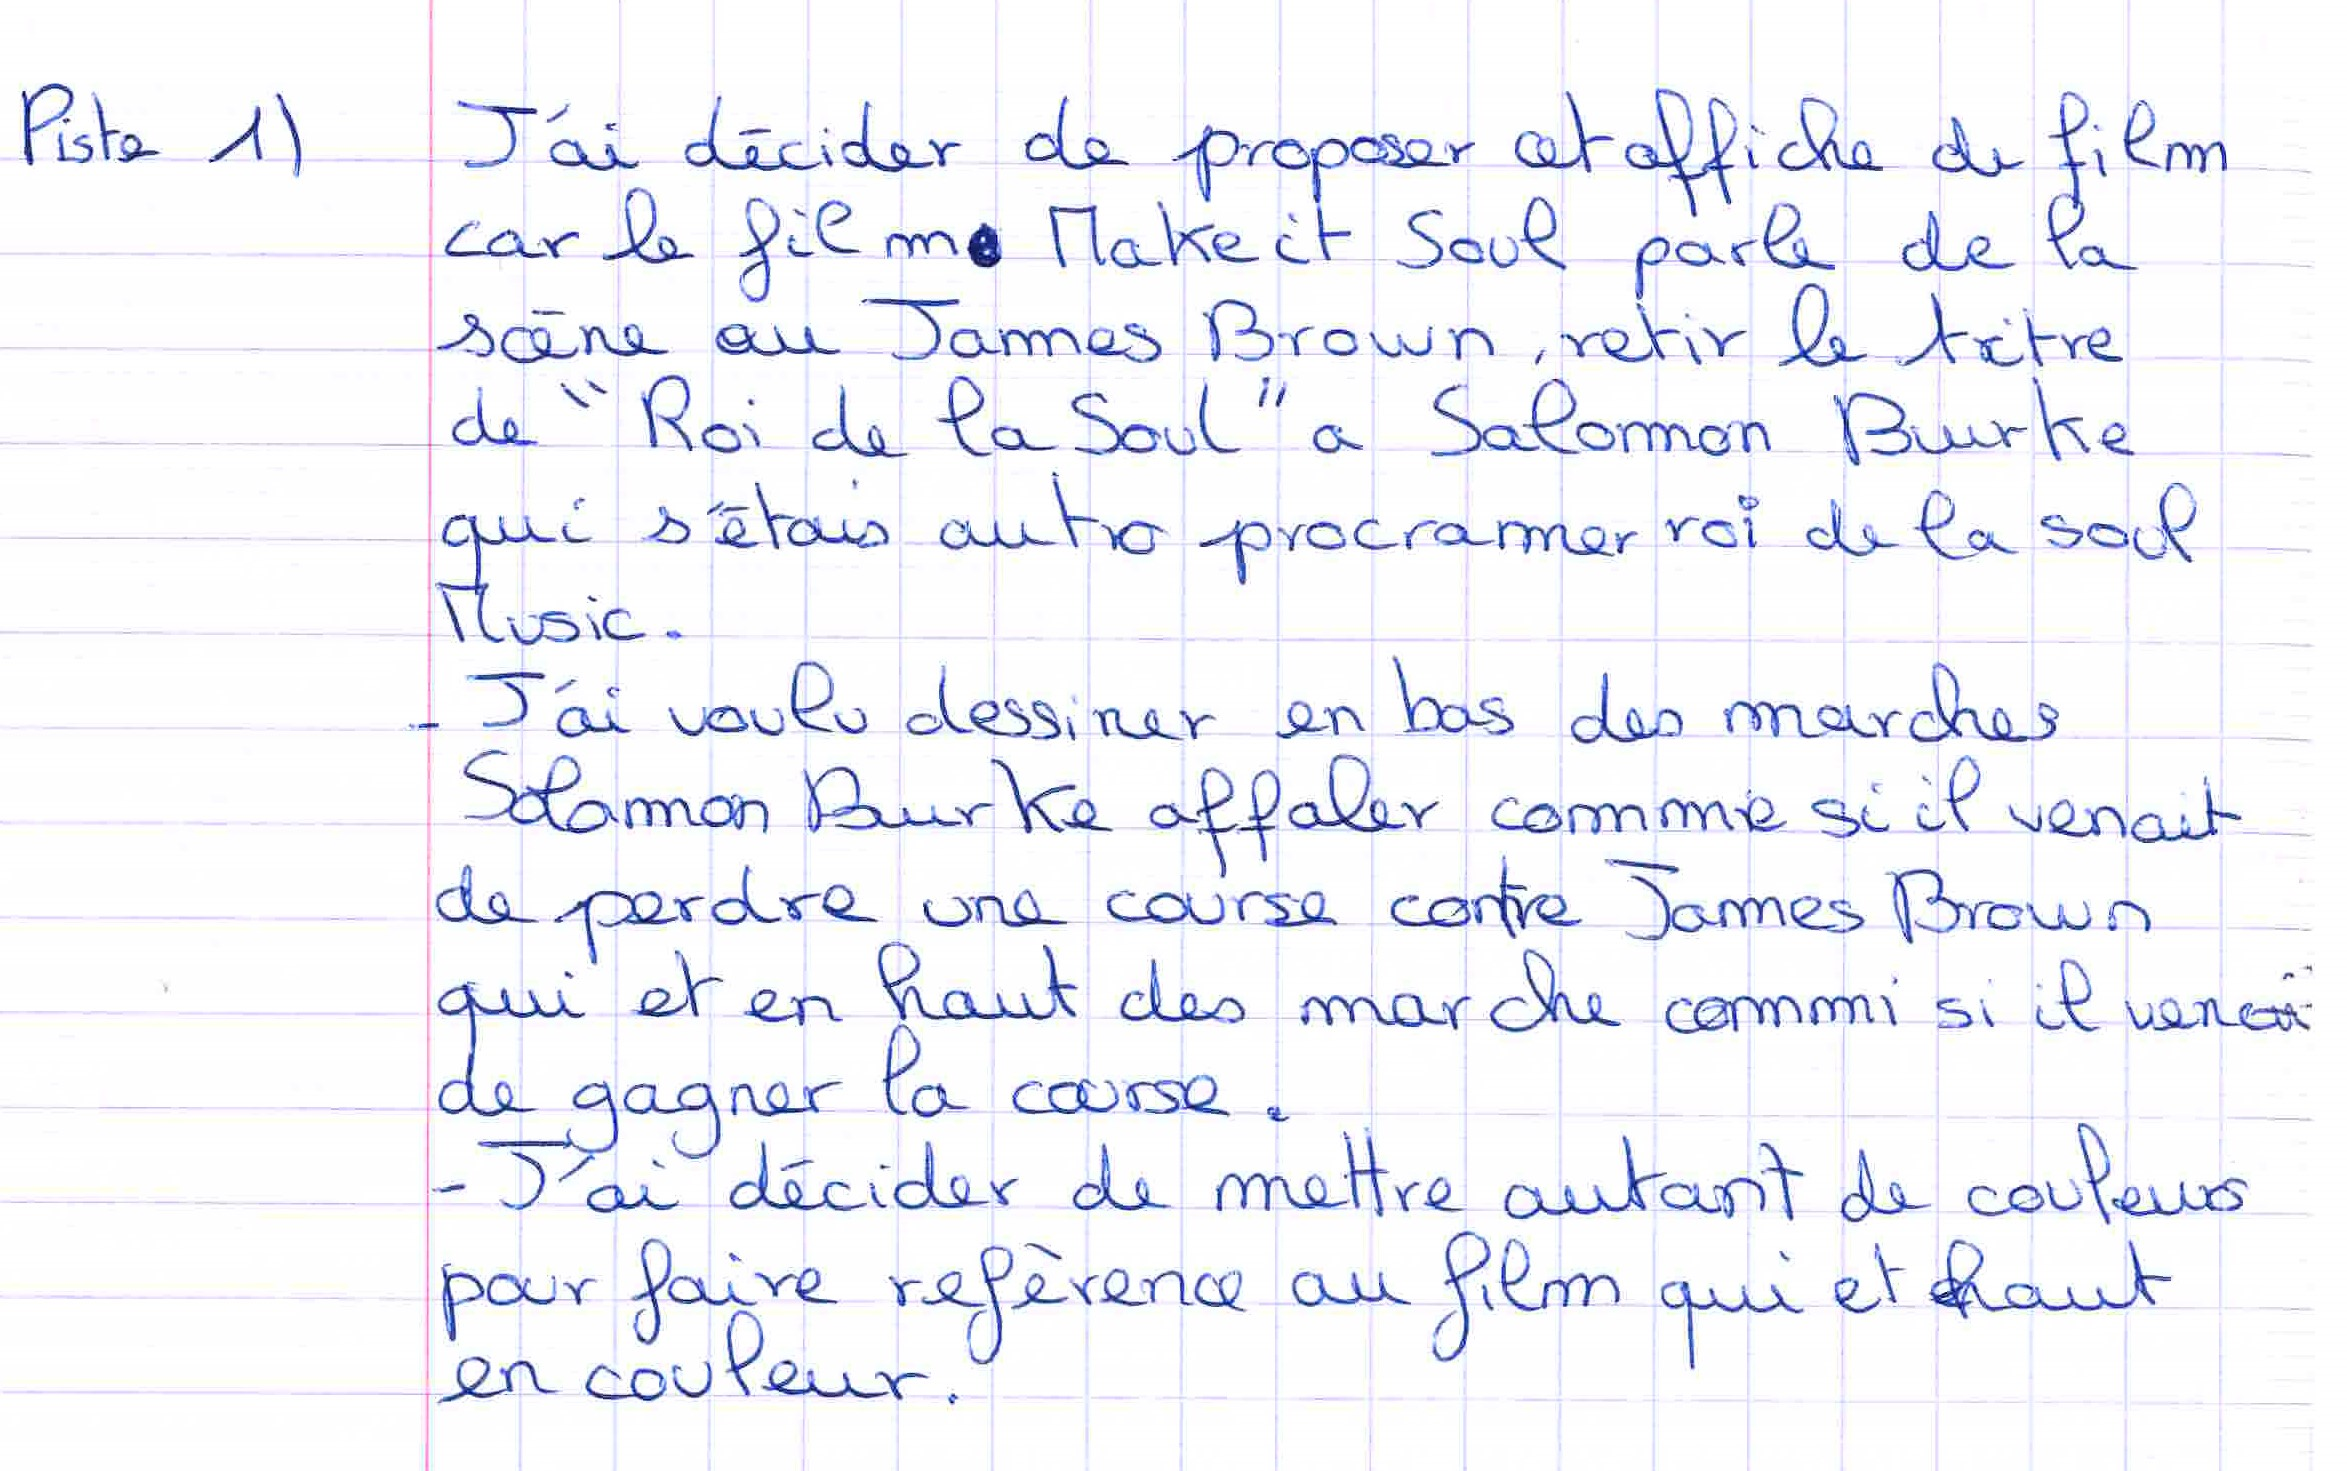 Piste 1) J'ai décider de proposer cet affiche de film
car le film Make it Soul parle de la
scène au James Brown, retir le titre
de "Roi de la Soul" a Salomon Burke
qui s'étais autro procramer roi de la soul
Music.
- J'ai voulu dessiner en bas des marches
Solomon Burke affaler comme si il venait
de perdre une course contre James Brown
qui et en haut des marche commi si il venait
de gagner la course.
- J'ai décider de mettre autant de couleurs
pour faire refèrence au film qui et haut
en couleur.